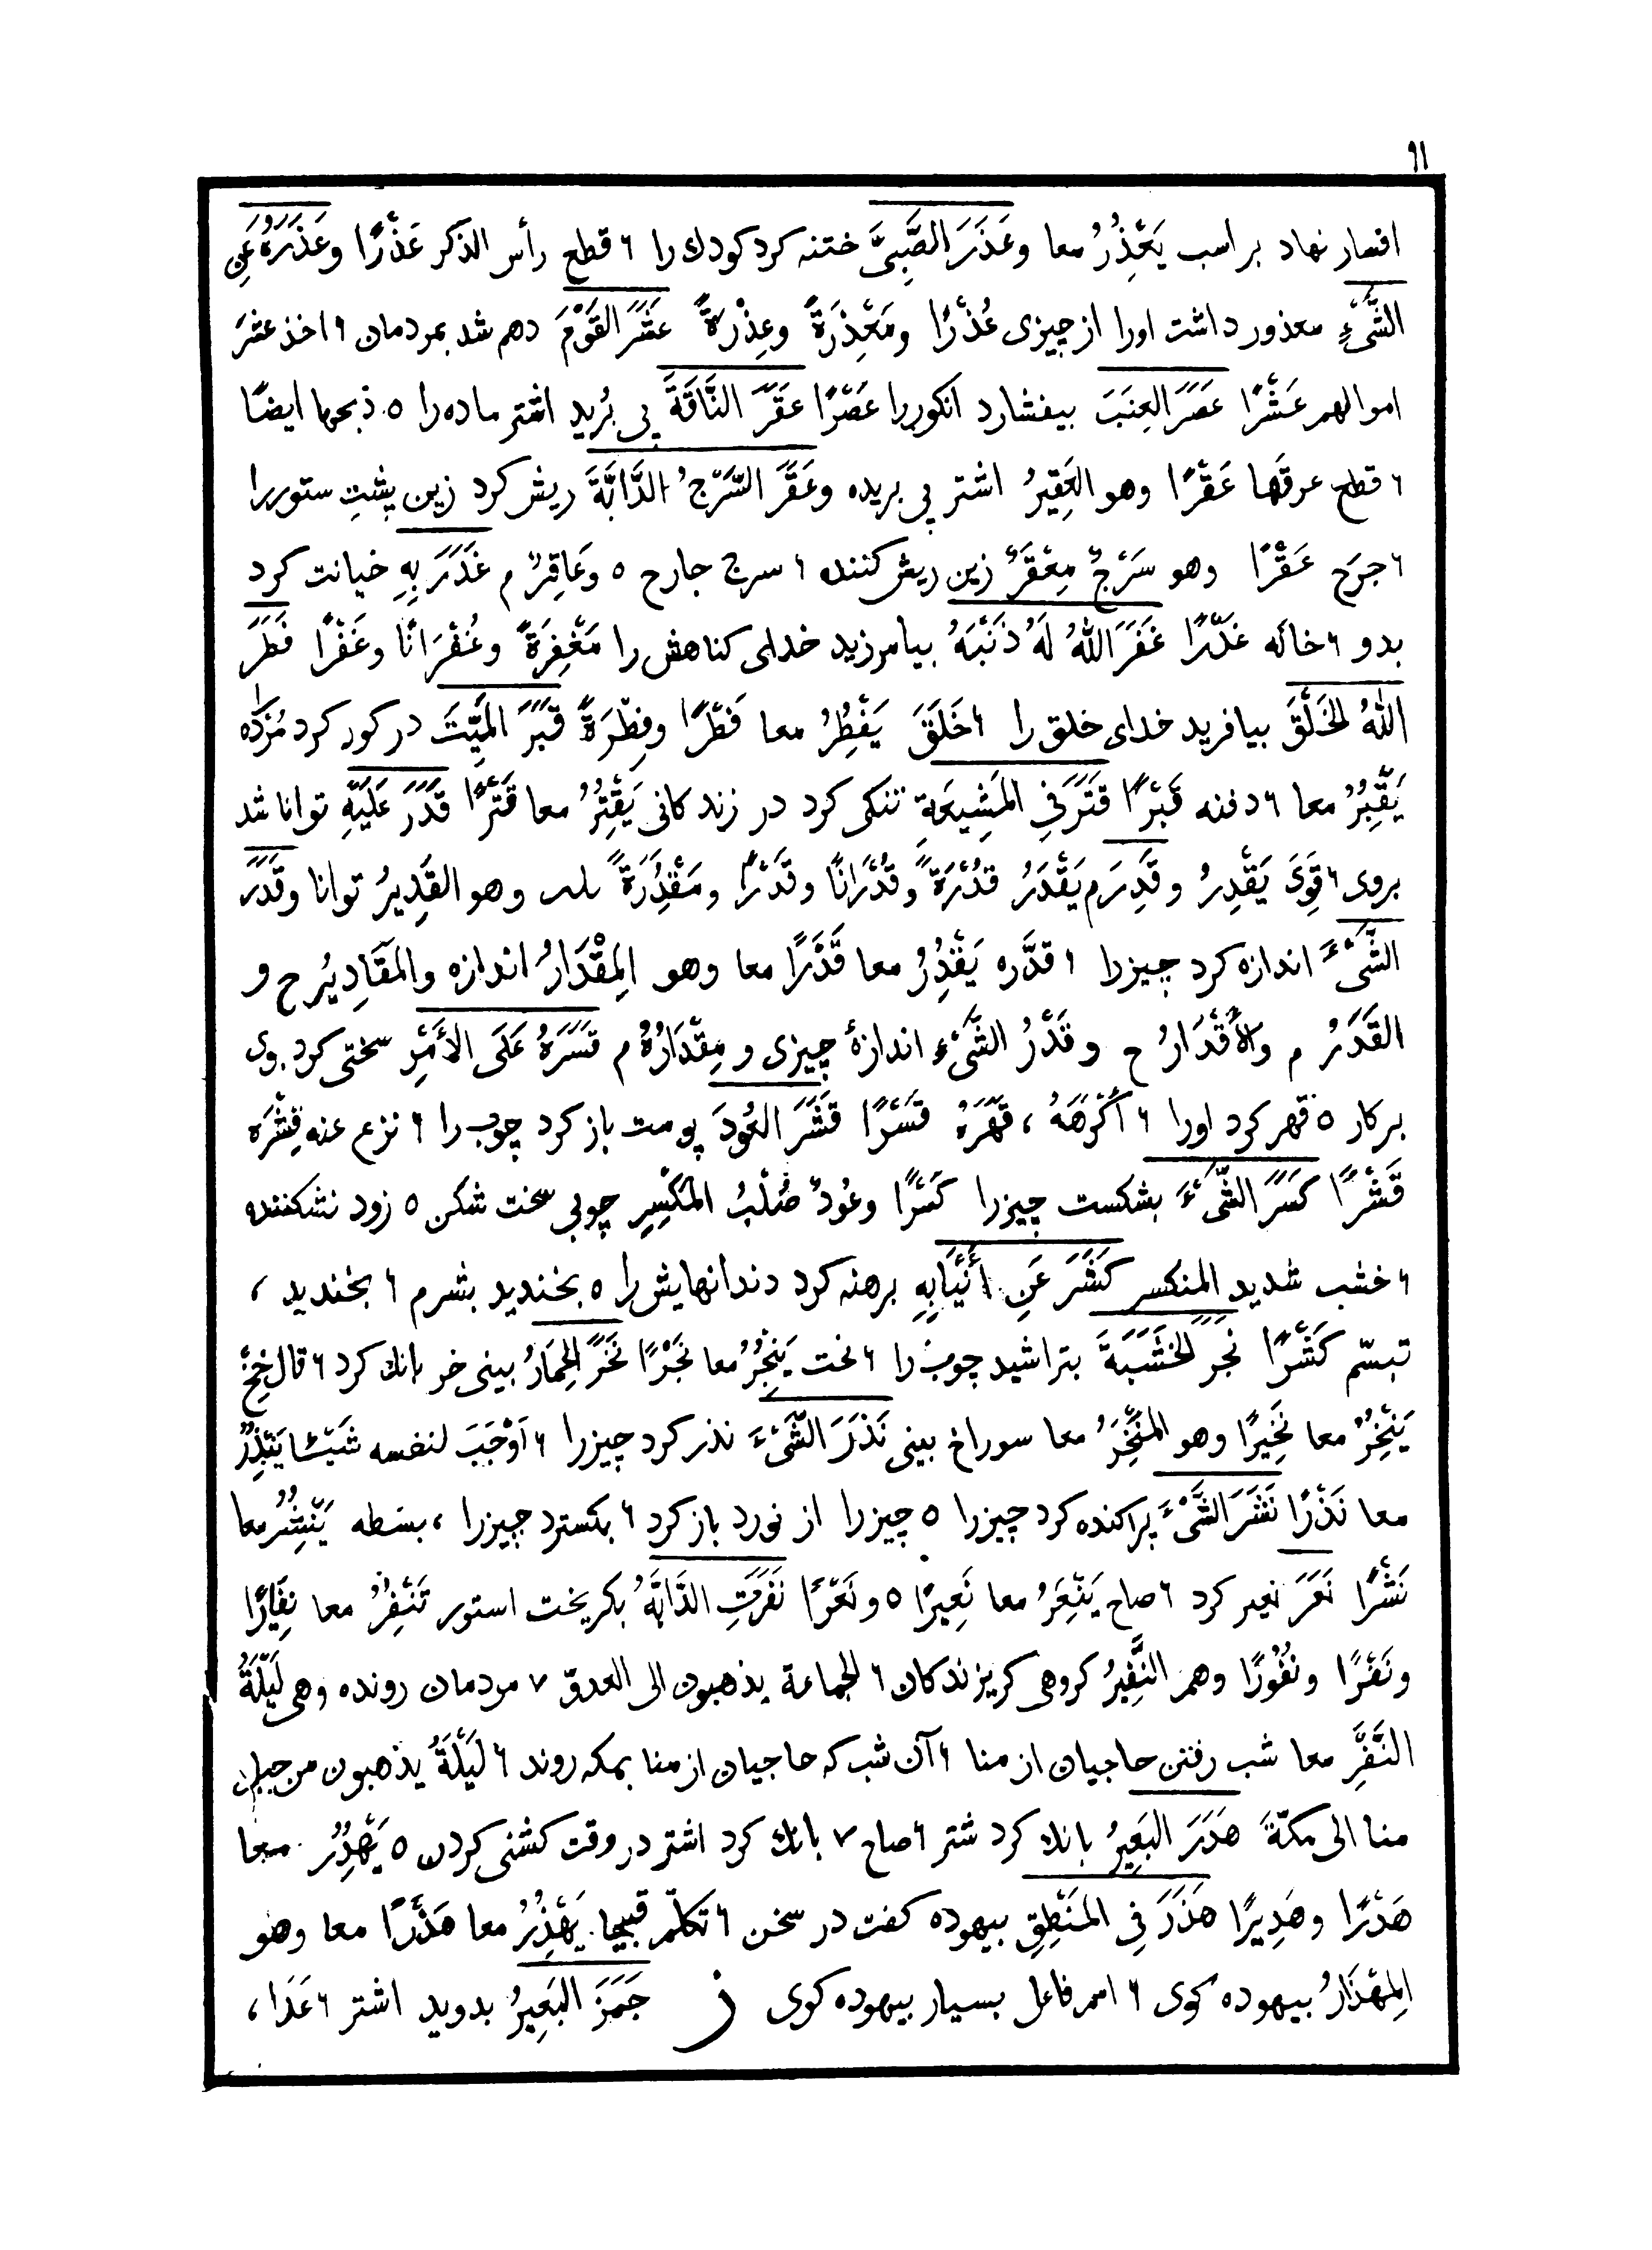 ٩١
افسار نهاد بر اسب يَعْذِرُ معا وعَذَرَ الصَّبِيَّ ختنه کرد کودك را ٦ قطع رأس الذکر عَذْرًا وعَذَرَهُ عَنِ
الشَّيْءِ معذور داشت اورا از چیزی عُذْرًا ومَعْذِرَةً وعِذْرَةً عَشَرَ القَوْمَ دهم شد بمردمان ٩ اخذ عشرَ
اموالهم عَشْرًا عَصَرَ العِنَبَ بیفشارد انکوررا عَصْرًا عَقَرَ النَّاقَةَ پی بُرید اشتر ماده را ٥ ذبحها ایضًا
٦ قطع عرقَها عَقْرًا وهو العَقِيرُ اشتر پی بریده وعَقَرَ السَّرْجُ الدَّابَّةَ ریش کرد زین پشتِ ستوررا
٦ جرَح عَقْرًا وهو سَرْجٌ مِعْقَرٌ زین ریش کننده ٦ سرج جارح ٥ وعَاقِرٌ م غَدَرَ بِهِ خیانت کرد
بدو ٦ خانَه غَدْرًا غَفَرَ اللهُ لَهُ ذَنْبَهُ بیامرزید خدای کناهش را مَغْفِرَةً وغُفْرَانًا وغَفْرًا فَطَرَ
اللهُ الخَلْقَ بیافرید خدای خلق را ٦ خَلَقَ يَفْطِرُ معا فَطْرًا وفِطْرَةً قَبَرَ المَيِّتَ در کور کرد مُرده را
يَقْبِرُ معا ٦ دفنه قَبْرًا قَتَرَ فِي المَعِيشَةِ تنکی کرد در زندکانی يَقْتِرُ معا قَتْرًا قَدَرَ عَلَيْهِ توانا شد
بروی ٦ قَوِيَ يَقْدِرُ وقَدِرَ م يَقْدَرُ قُدْرَةً وقُدْرَانًا وقَدْرًا ومَقْدُرَةً وهو القَدِيرُ توانا وقَدَرَ
الشَّيْءَ اندازه کرد چیزرا ٦ قدَّره يَقْدِرُ معا قَدْرًا معا وهو المِقْدَارُ اندازه والمَقَادِيرُ ح و
القَدَرُ م والأَقْدَارُ ح وقَدْرُ الشَّيْءِ اندازهٔ چیزی ومِقْدَارُهُ م قَسَرَهُ عَلَى الأَمْرِ سختی کرد بوی
بر کار ٥ قهر کرد اورا ٦ أَكْرَهَهُ ، قَهَرَهُ قَسْرًا قَشَرَ العُودَ پوست باز کرد چوب را ٦ نزع عنه قِشْرَه
قَشْرًا كَسَرَ الشَّيْءَ بشکست چیزرا كَسْرًا وعُودٌ صُلْبُ المَكْسِرِ چوبی سخت شکن ٥ زود نشکننده
٦ خشب شدید المنکسر كَشَرَ عَنِ أَنْيَابِهِ برهنه کرد دندانهایش را ٥ بخندید بشرم ٦ بخندید ،
تبسّم كَشْرًا نَجَرَ الخَشَبَةَ بتراشید چوب را ٦ نحت يَنْجِرُ معا نَجْرًا نَخَرَ الحِمَارُ بینی خر بانك کرد ٦ قال خِخْ
يَنْخِرُ معا نَخِيرًا وهو المَنْخِرُ معا سوراخ بینی نَذَرَ الشَّيْءَ نذر کرد چیزرا ٦ أَوْجَبَ لنفسه شَيْئًا يَنْذِرُ
معا نَذْرًا نَشَرَ الشَّيْءَ پراکنده کرد چیزرا ٥ چیزرا از نورد باز کرد ٦ بکسترد چیزرا ، بسَطه يَنْشِرُ معا
نَشْرًا نَعَرَ نعیر کرد ٦ صاح يَنْعِرُ معا نَعِيرًا ٥ ونَعْرًا نَفَرَتِ الدَّابَّةُ بکریخت استور تَنْفِرُ معا نِفَارًا
ونَفْرًا ونُفُورًا وهم النَّفِيرُ کروهی کریزندکان ٦ الجماعة یذهبون الی العدوّ ٧ مردمان رونده وهي لَيْلَةُ
النَّفْرِ معا شب رفتن حاجیان از منا ٦ آن شب که حاجیان از منا بمکه روند ٦ لَيْلَةُ یذهبون من جبل
منا الی مکّةَ هَدَرَ البَعِيرُ بانك کرد شتر ٦ صاح ٧ بانك کرد اشتر در وقت کشنی کردن ٥ يَهْدِرُ معا
هَدْرًا وهَدِيرًا هَذَرَ فِي المَنْطِقِ بیهوده کفت در سخن ٦ تکلّم قبیحا يَهْذِرُ معا هَذْرًا معا وهو
المِهْذَارُ بیهوده کوی ٦ اسم فاعل بسیار بیهوده کوی ز جَمَزَ البَعِيرُ بدوید اشتر ٦ عَدَا ،